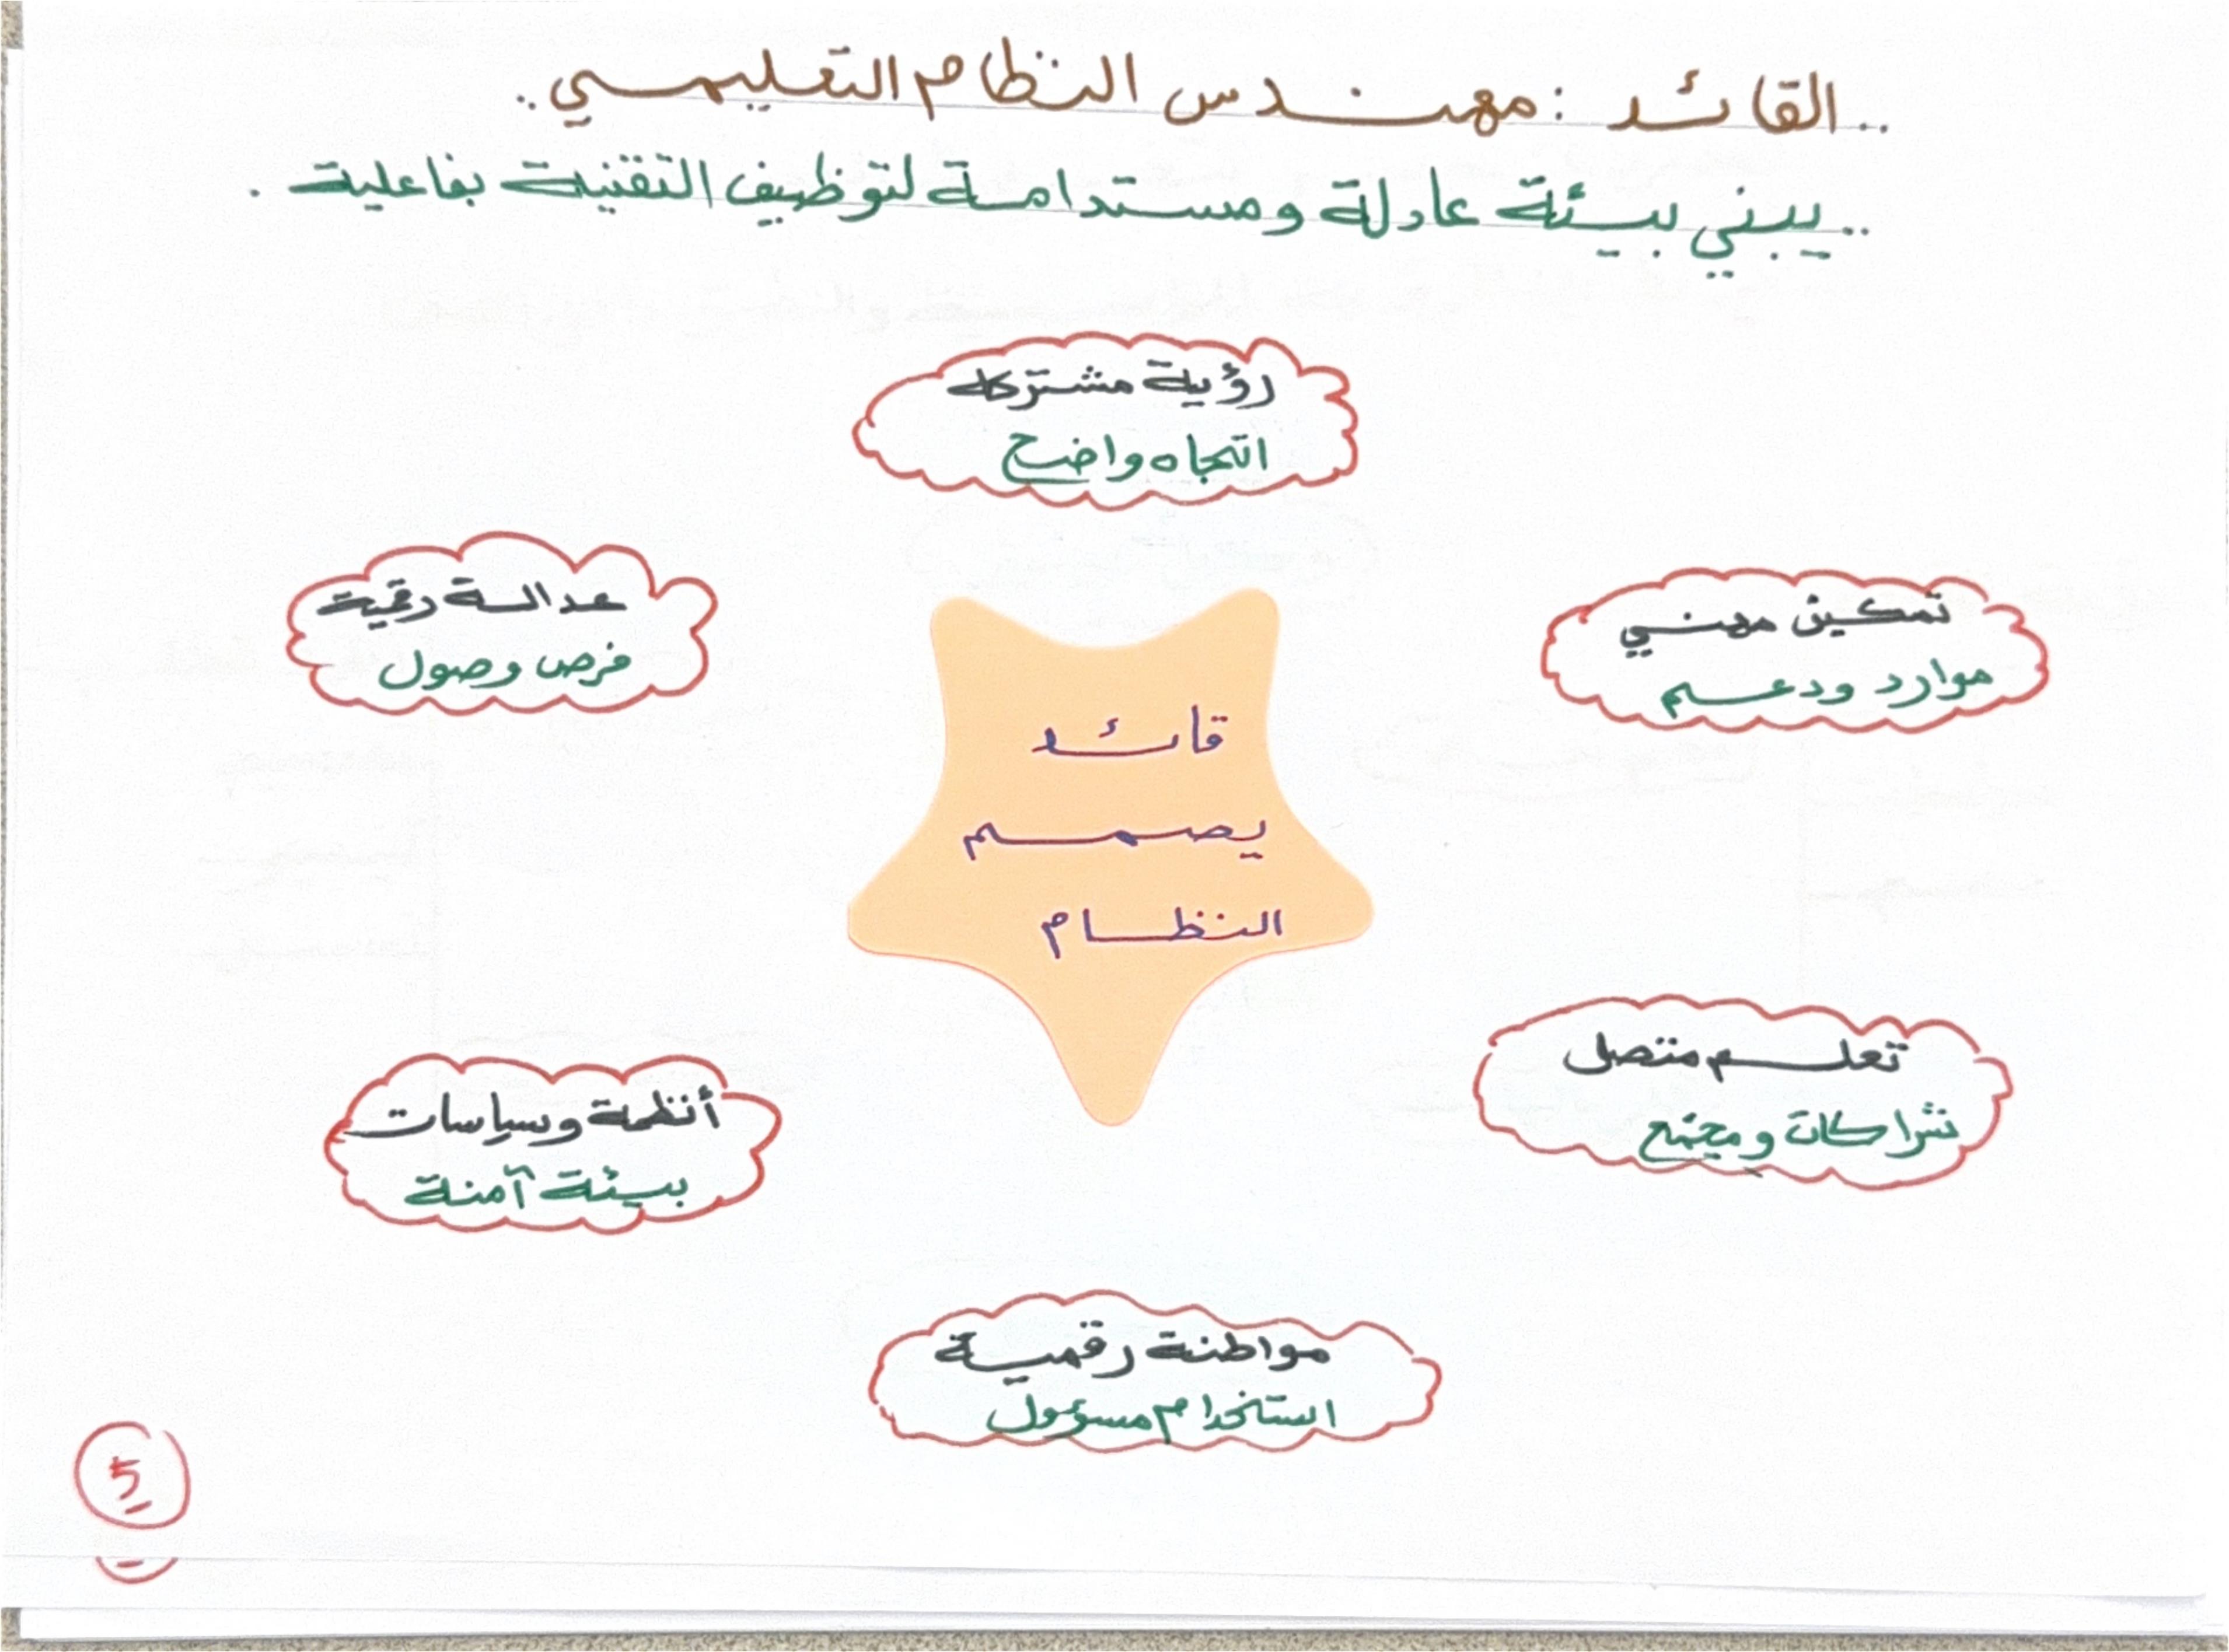 ..القائد : مهندس النظام التعليمي..
..يبني بيئة عادلة ومستدامة لتوظيف التقنية بفاعلية .
رؤية مشتركه
اتجاه واضح
تمكين مهني
موارد ودعم
عدالة رقمية
فرص وصول
قائد
يصمم
النظام
تعلم متصل
شراكات ومجتمع
أنظمة وسياسات
بيئة آمنة
مواطنة رقمية
استخدام مسؤول
5